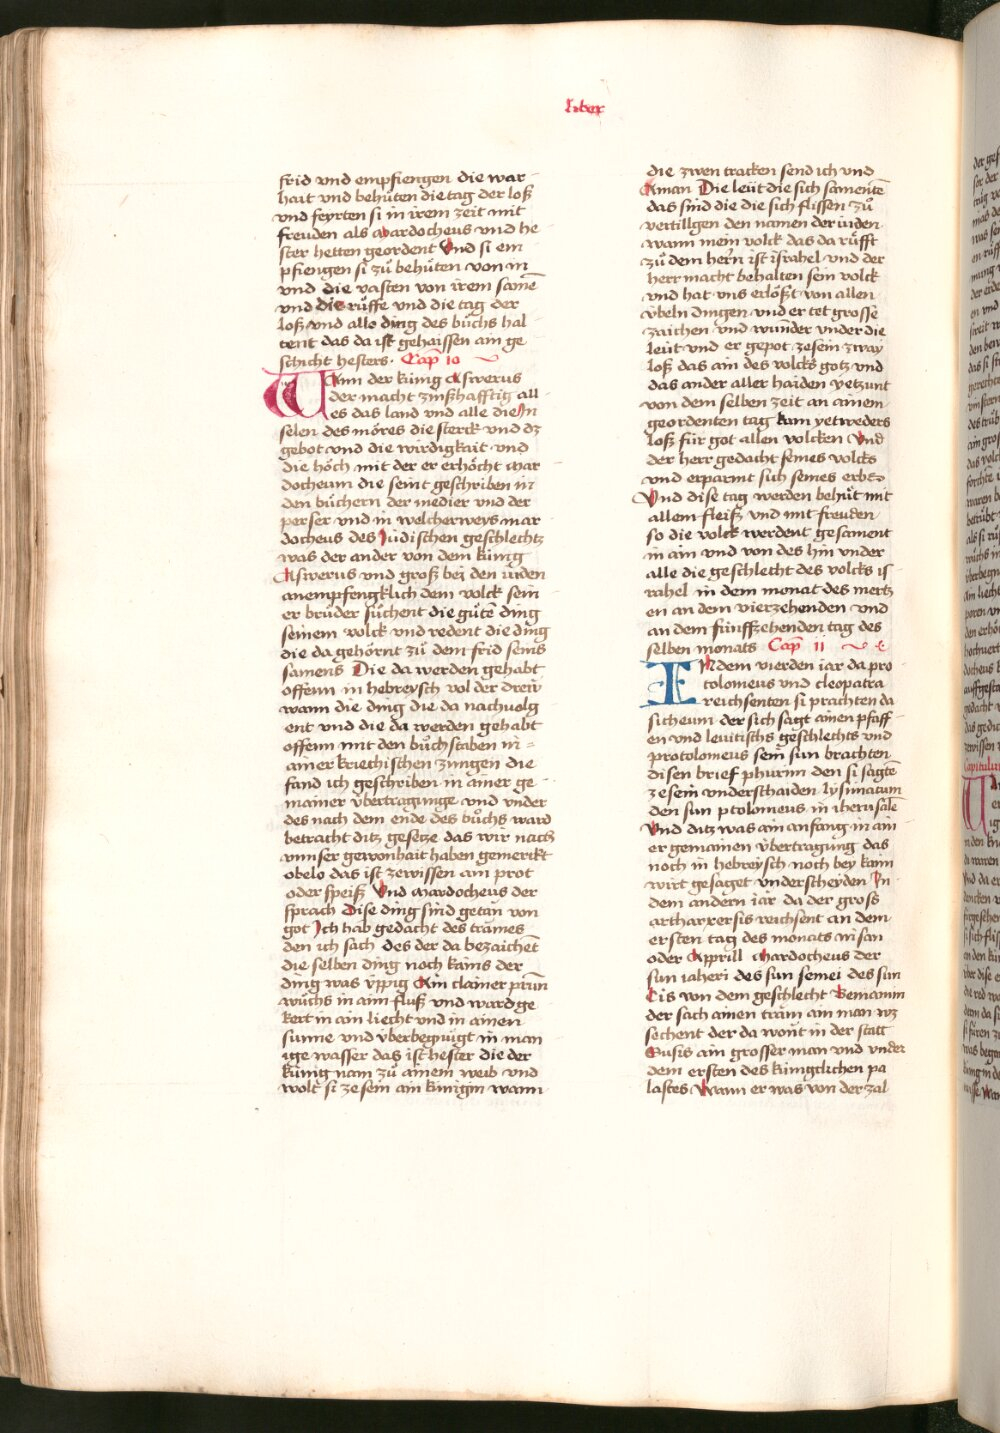 liber
frid vnd empfiengen die war-
hait vnd behůten die tag der loß
vnd feyrten si in irem zeit mit
freuden als mardocheus vnd he
ster hetten geordent Vnd si em
pfiengen si zů behůten von in
vnd die vasten von irem samē
vnd die růffe vnd die tag der
loß vnd alle ding des bůchs hal
tent das da ist gehaissen ain ge
schicht hesters. Cap̄ 10
WAnn der künig Aswerus
der macht zinßhafftig all-
es das land vnd alle die In
selen des möres die sterck vnd dz
gebot vnd die wirdigkait vnd
die höch mit der er erhöcht mar
docheum die seint geschriben in
den bůchern der medier vnd der
perser vnd in welcherweys mar
docheus des Jüdischen geschlechtz
was der ander von dem künig
Aswerus vnd groß bei den iuden
anempfengklich dem volck sein
er brůder sůchent die gůtē ding
seinem volck vnd redent die ding
die da gehörnt zů dem frid seins
samens Die da werden gehabt
offenn in hebreysch vol der drew
wann die ding die da nachuolg
ent vnd die da werden gehabt
offenn mit den bůchstaben in =
ainer kriechischen zungen die
fand ich geschriben in ainer ge
mainer v̈bertragunge vnd vnder
des nach dem ende des bůchs ward
betracht ditz gesetze das wir nach
vnnser gewonhait haben gemerckt
obelo das ist zewissen am prot
oder speiß Vnd mardocheus der
sprach Dise ding sind getan von
got Ich hab gedacht des trames
den ich sach des der da bezaichet
die selben ding noch kains der
ding was v̈ppig Ain clainer prūn
wůchs in ain fluß vnd ward ge
kert in ain liecht vnd in ainen
sunne vnd v̈berbegnügt in man
ige wasser das ist hester die der
künig nam zů ainem weib vnd
wolt si ze sein ain künigin wann
die zwen tracken send ich vnd
Aman Die leüt die sich sament
das sind die die sich flissen zů
vertillgen den namen der iüden
wann mein volck das da růfft
zů dem hern ist israhel vnd der
herr macht behalten sein volck
vnd hat vns erlößt von allen
v̈beln dingen vnd er tet grosse
zaichen vnd wunder vnder die
leüt vnd er gepot ze sein zway
loß das ain des volcks gotz vnd
das ander aller haiden yetzunt
von dem selben zeit an ainem
geordenten tag kam yetweders
loß für got allen volcken Vnd
der herr gedacht seines volcks
vnd erparmt sich seines erbes
Vnd dise tag werden behüt mit
allem fleiß vnd mit freuden
so die volck werdent gesament
in ain vnd von des hin vnder
alle die geschlecht des volcks is
rahel in dem monat des mertz
en an dem vierzehenden vnd
an dem fünffzehenden tag des
selben monats Cap̄ 11
INdem vierden iar da pro
tolomeus vnd cleopatra
reichsenten si prachten da
sicheum der sich sagt ainen pfaff
en vnd leuitischs geschlechts vnd
protolomeus sein sun brachten
disen brief phurim den si sagtē
ze sein vnderschaiden lysimatum
den sun ptolomeus in iherusalē
Vnd ditz was ain anfang in ain
er gemainen v̈bertragung das
noch in hebreysch noch bey kaim
wirt gesaget vnderscheyden In
dem andern iar da der groß
artharxersis reichsent an dem
ersten tag des monats nisan
oder Apprill Mardocheus der
sun iaheri des sun semei des sun
Cis von dem geschlecht Beniamin
der sach ainen tram ain man wz
sechent der da wont in der statt
Susis ain grosser man vnd vnder
dem ersten des künigclichen pa
lastes Wann er was von der zal